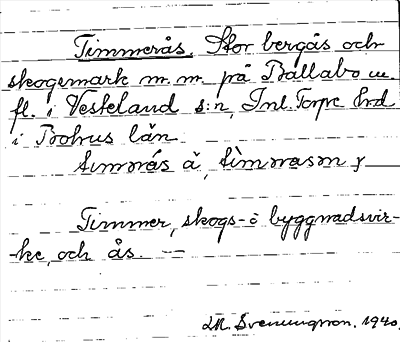 Timmerås. Stor bergås och
skogsmark m.m. på Ballabo m.
fl. i Vesteland s:n, Inl. Torpe hrd
i Bohus län.
Timmer, skogs- o byggnadsvir-
-ke, och ås. —
M. Svenungsson. 1940.